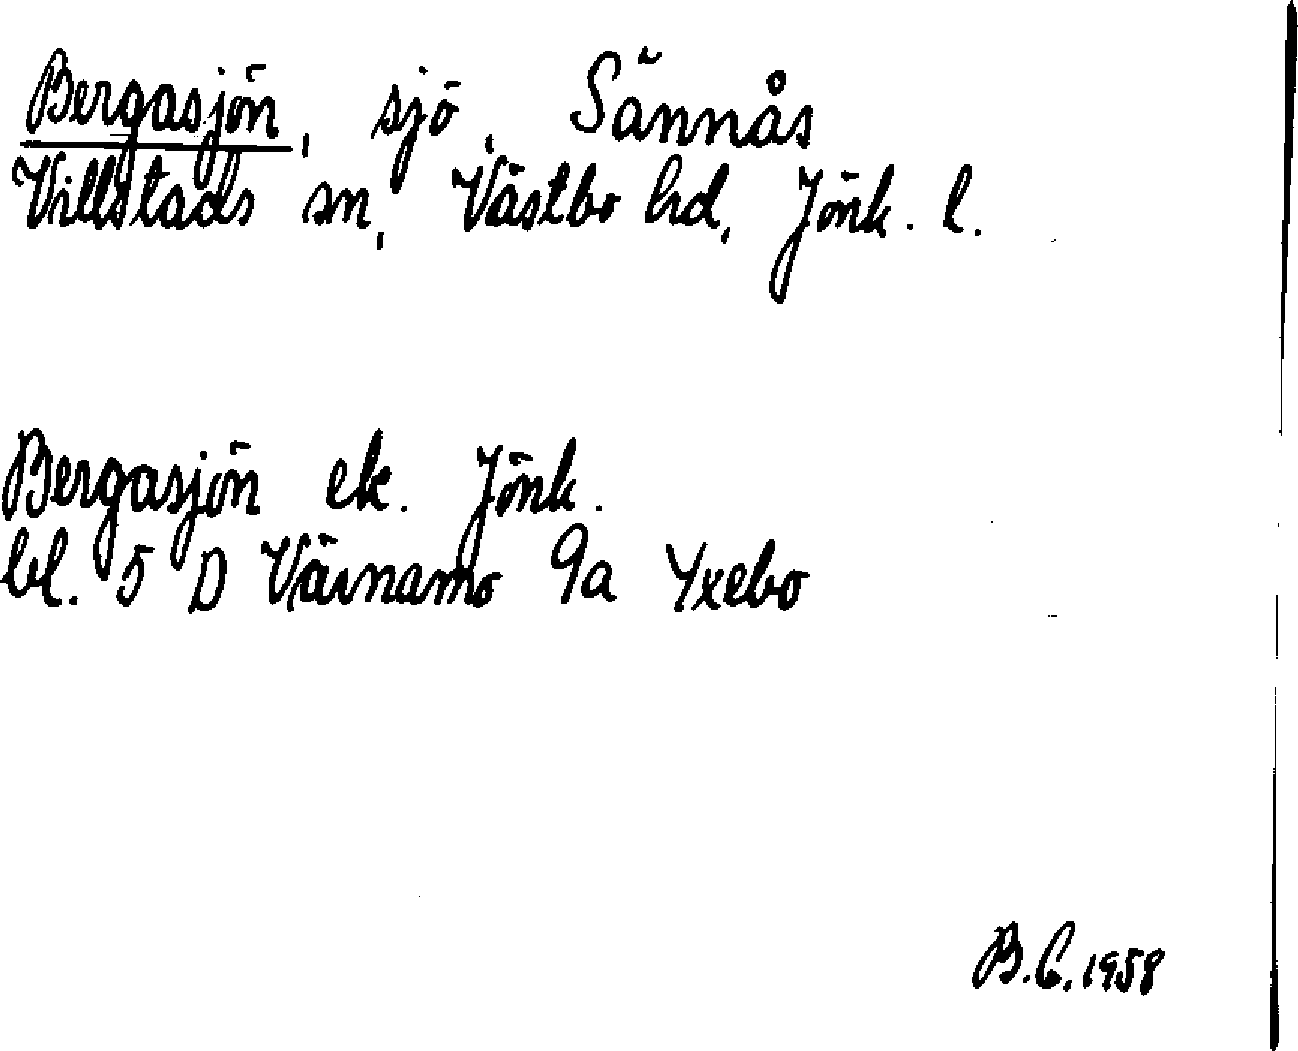 Bergasjön, sjö, Sännås
Villstads sn, Västbo hd, Jönk. l.
Bergasjön ek. Jönk.
bl. 5 D Värnamo 9a Yxebo
B.C. 1958